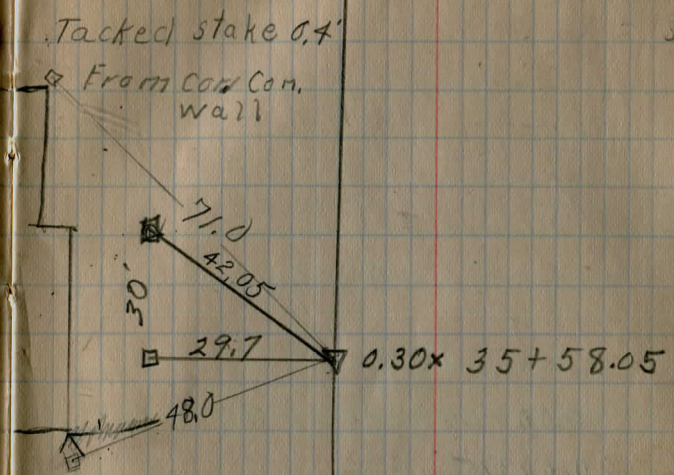 Tacked stake 0.4'
From cor Con.
wall
71.0
42.05
30'
29.7
0.30x 35+58.05
48.0